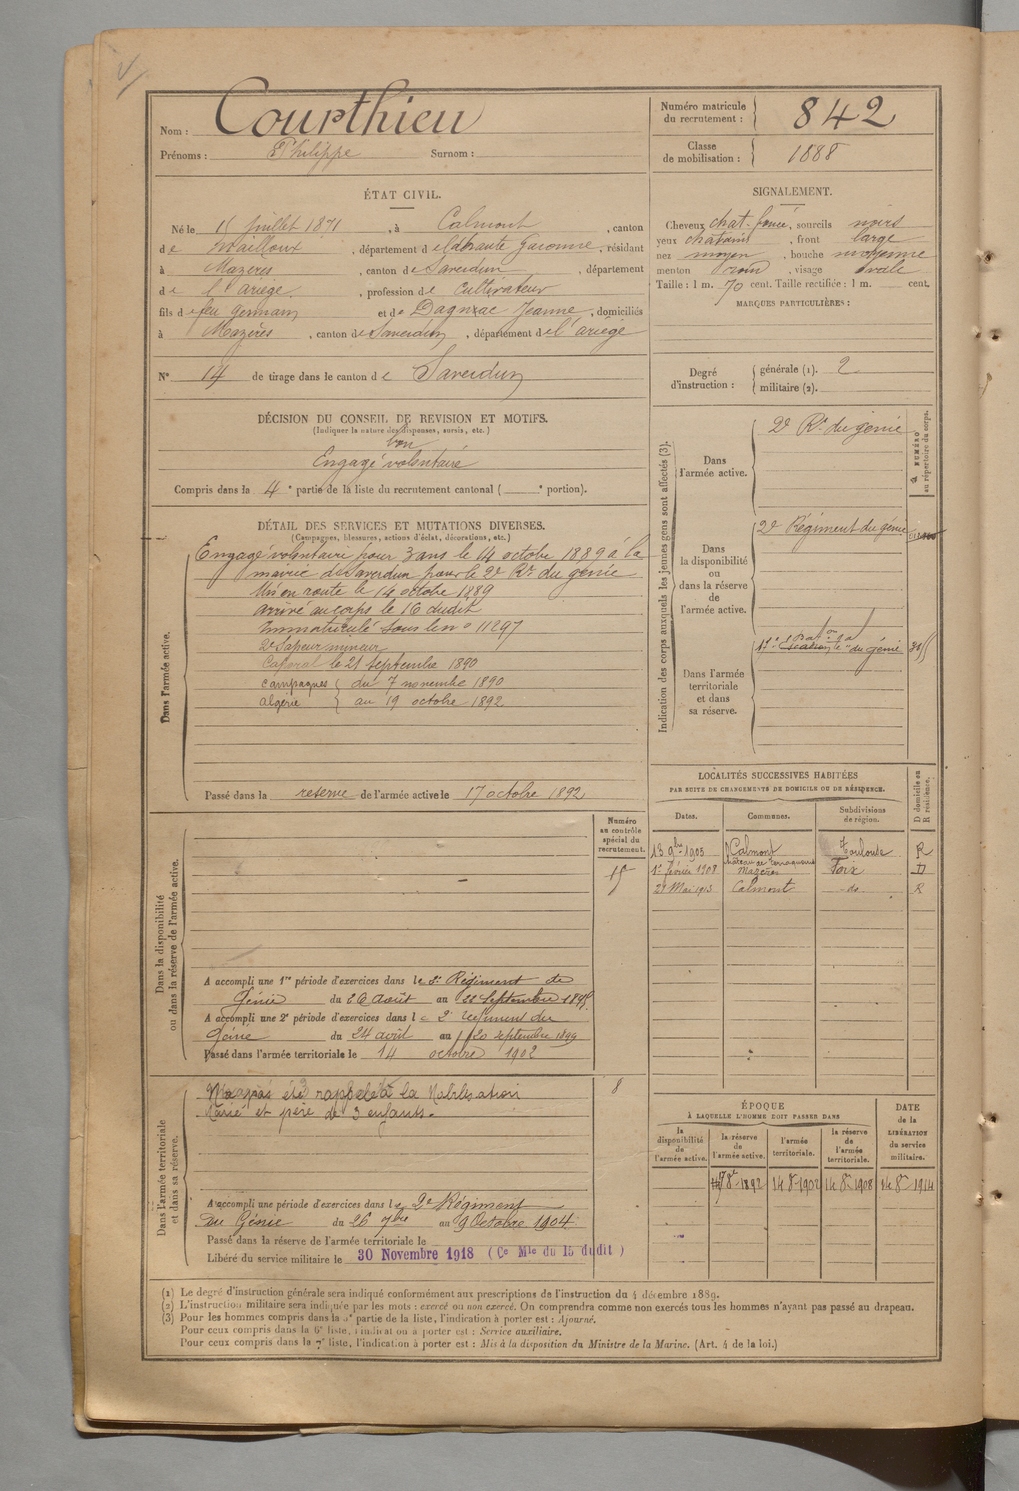 Nom : Courthieu
Prénoms : Philippe Surnom :
Numéro matricule du recrutement : 842
Classe de mobilisation : 1888
ÉTAT CIVIL.
Né le 15 juillet 1871, à Calmont, canton
de Nailloux, département de la haute Garonne, résidant
à Mazères, canton de Saverdun, département
de l'ariège, profession de cultivateur
fils de feu germain et de Dagnzac Jeanne, domiciliés
à Mazerès, canton de Saverdun, département de l'ariège
N° 14 de tirage dans le canton de Saverdun
SIGNALEMENT.
Cheveux chat. foncé, sourcils noirs
yeux chatains, front large
nez moyen, bouche moyenne
menton rond, visage ovale
Taille : 1 m. 70 cent. Taille rectifiée : 1 m. cent.
MARQUES PARTICULIÈRES :
Degré d'instruction : générale (1). 2
militaire (2).
DÉCISION DU CONSEIL DE REVISION ET MOTIFS.
(Indiquer la nature des dispenses, sursis, etc.)
bon
Engagé volontaire
Compris dans la 4e partie de la liste du recrutement cantonal ( e portion).
DÉTAIL DES SERVICES ET MUTATIONS DIVERSES.
(Campagnes, blessures, actions d'éclat, décorations, etc.)
Dans l'armée active.
Engagé volontaire pour 3 ans le 14 octobre 1889 à la
mairie de Saverdun pour le 2e Rt du génie
Mis en route le 14 octobre 1889
arrivé au corps le 16 dudit
Immatriculé sous le n° 11297
2e Sapeur mineur
Caporal le 21 septembre 1890
campagnes { du 7 novembre 1890
algérie } au 19 octobre 1892
Passé dans la reserve de l'armée active le 17 octobre 1892
Indication des corps auxquels les jeunes gens sont affectés (3).
NUMÉRO au répertoire du corps.
Dans l'armée active.
2e Rt du génie
Dans la disponibilité ou dans la réserve de l'armée active.
2e Régiment du génie
Dans l'armée territoriale et dans sa réserve.
du génie
LOCALITÉS SUCCESSIVES HABITÉES
PAR SUITE DE CHANGEMENTS DE DOMICILE OU DE RÉSIDENCE.
D domicile ou R résidence.
Dates. Communes. Subdivisions de région.
13 9bre 1905 Calmont Toulouse R
1er février 1908 château de Mazères Foix D
29 Mai 1913 Calmont do R
Numéro au contrôle spécial du recrutement.
Dans la disponibilité ou dans la réserve de l'armée active.
A accompli une 1re période d'exercices dans le 2e Régiment de
Génie du 26 août au 22 septembre 1895
A accompli une 2e période d'exercices dans le 2e régiment du
Génie du 24 août au 20 septembre 1899
Passé dans l'armée territoriale le 14 octobre 1902
Dans l'armée territoriale et dans sa réserve.
N'a pas été rappelé à la Mobilisation
Marié et père de 3 enfants.
8
A accompli une période d'exercices dans le 2e Régiment
du Génie du 26 7bre au 9 Octobre 1904
Passé dans la réserve de l'armée territoriale le
Libéré du service militaire le 30 Novembre 1918 (Ce Mle du 15 dudit)
ÉPOQUE
À LAQUELLE L'HOMME DOIT PASSER DANS
la disponibilité de l'armée active.
la réserve de l'armée active.
l'armée territoriale.
la réserve de l'armée territoriale.
DATE de la LIBÉRATION du service militaire.
8bre 1892 14 8bre 1902 14 8bre 1908 14 8bre 1914
(1) Le degré d'instruction générale sera indiqué conformément aux prescriptions de l'instruction du 4 décembre 1889.
(2) L'instruction militaire sera indiquée par les mots : exercé ou non exercé. On comprendra comme non exercés tous les hommes n'ayant pas passé au drapeau.
(3) Pour les hommes compris dans la 5e partie de la liste, l'indication à porter est : Ajourné.
Pour ceux compris dans la 6e liste, l'indication à porter est : Service auxiliaire.
Pour ceux compris dans la 7e liste, l'indication à porter est : Mis à la disposition du Ministre de la Marine. (Art. 4 de la loi.)